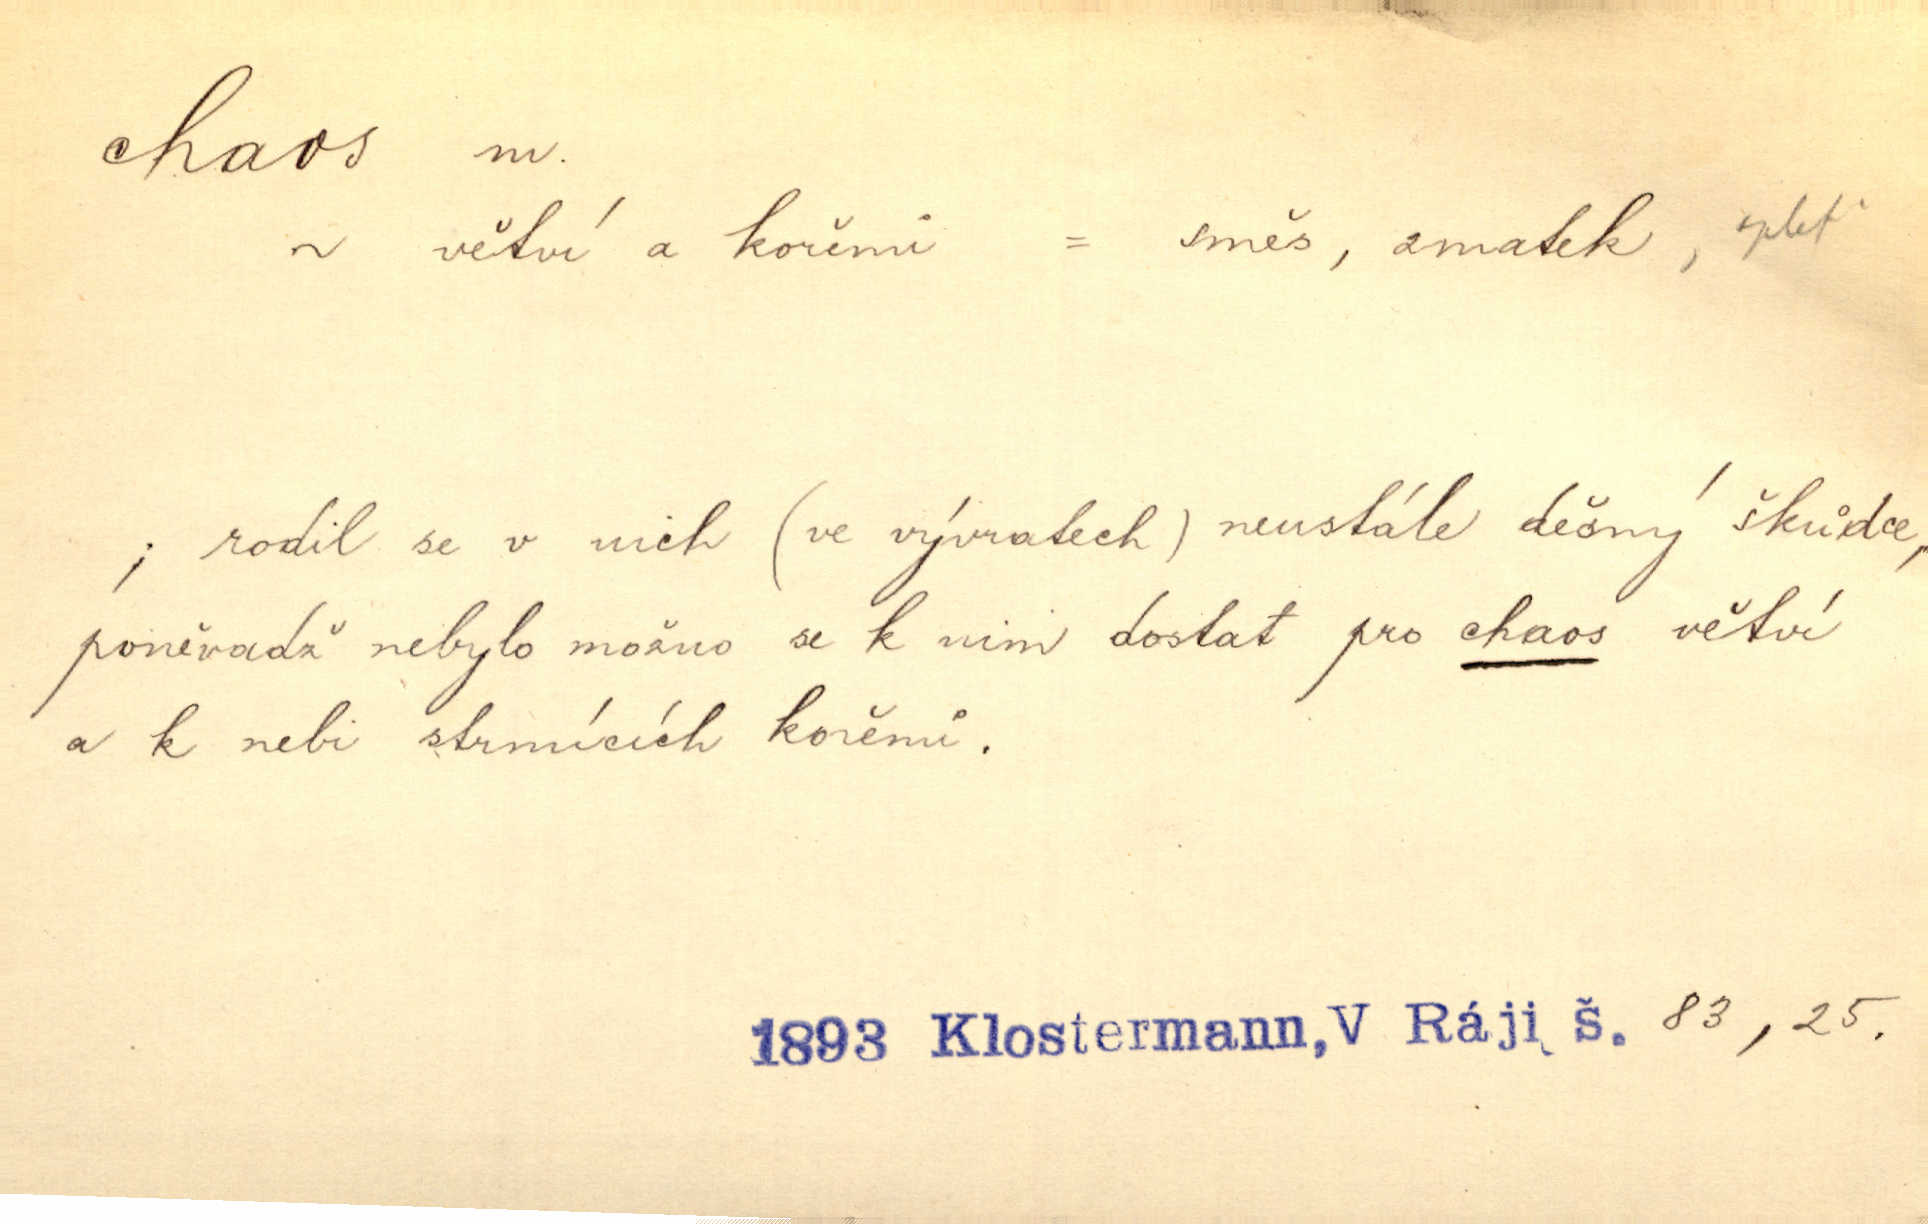 chaos m.
~ větví a kořenů = směs, zmatek, spleť
; rodil se v nich (ve vývratech) neustále děsný škůdce,
poněvadž nebylo možno se k nim dostat pro chaos větví
a k nebi strmících kořenů.
1893 Klostermann, V Ráji š. 83, 25.